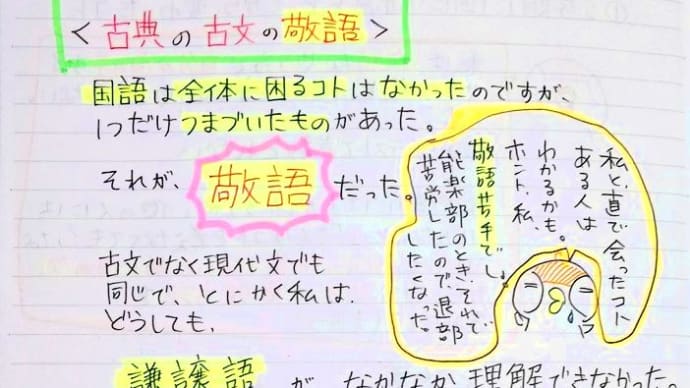 ＜古典の古文の敬語＞
国語は全体に困るコトはなかったのですが、
1つだけつまづいたものがあった。
それが、敬語だった。
私と直で会ったコト
ある人は
わかるかも。
ホント、私、
敬語苦手でし。
能楽部のとき、それで
苦労したので、退部
したくなった。
古文でなく現代文でも
同じで、とにかく私は、
どうしても、
謙譲語が、なかなか理解できなかった。